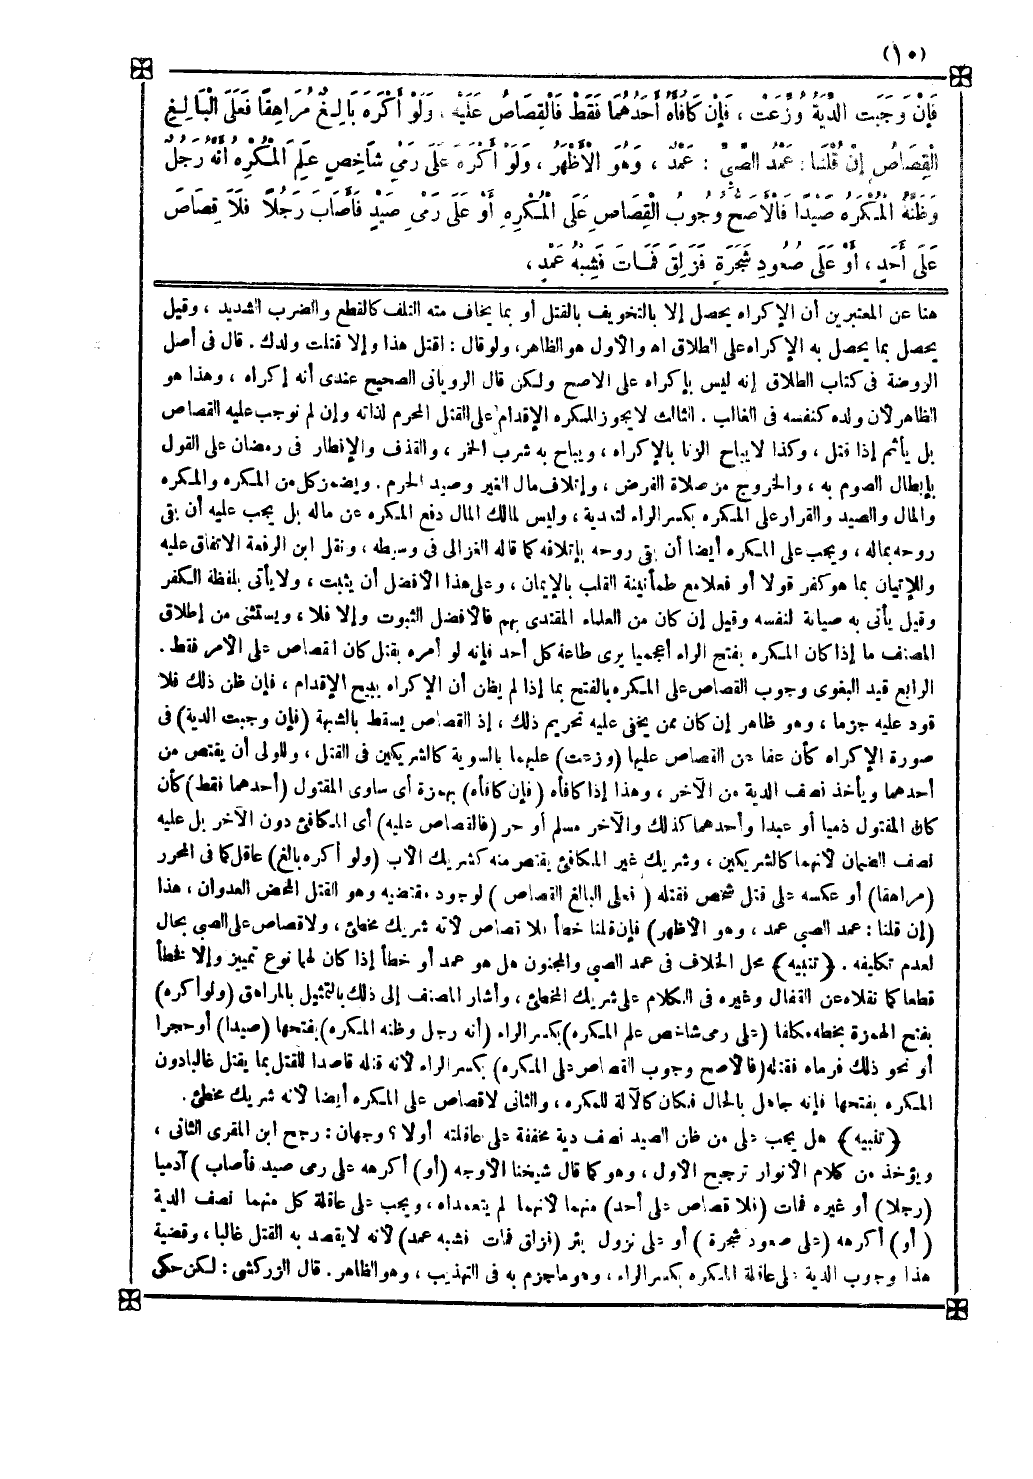 (١٠)
فَإِنْ وَجَبَت الدِّيَةُ وُزِّعَتْ ، فَإِنْ كَافَأَهُ أَحَدُهُمَا فَقَطْ فَالْقِصَاصُ عَلَيْهِ ، وَلَوْ أَكْرَهَ بَالِغٌ مُرَاهِقًا فَعَلَى الْبَالِغِ
الْقِصَاصُ إِنْ قُلْنَا : عَمْدُ الصَّبِيِّ : عَمْدٌ ، وَهُوَ الْأَظْهَرُ ، وَلَوْ أَكْرَهَ عَلَى رَمْىِ شَاخِصٍ عَلِمَ الْمُكْرِهُ أَنَّهُ رَجُلٌ
وَظَنَّهُ الْمُكْرَهُ صَيْدًا فَالْأَصَحُّ وُجُوبُ الْقِصَاصِ عَلَى الْمُكْرِهِ أَوْ عَلَى رَمْىِ صَيْدٍ فَأَصَابَ رَجُلًا فَلَا قِصَاصَ
عَلَى أَحَدٍ ، أَوْ عَلَى صُعُودِ شَجَرَةٍ فَزَلِقَ فَمَاتَ فَشِبْهُ عَمْدٍ ،
هنا عن المعتبرين أن الإكراه يحصل إلا بالتخويف بالقتل أو بما يخاف منه التلف كالقطع والضرب الشديد ، وقيل
يحصل بما يحصل به الإكراه على الطلاق اه والأول هو الظاهر، ولو قال : اقتل هذا وإلا قتلت ولدك . قال فى أصل
الروضة فى كتاب الطلاق إنه ليس بإكراه على الاصح ولكن قال الرويانى الصحيح عندى أنه إكراه ، وهذا هو
الظاهر لأن ولده كنفسه فى الغالب . الثالث لا يجوز للمكره الإقدام على القتل المحرم لذاته وإن لم نوجب عليه القصاص
بل يأثم إذا قتل ، وكذا لا يباح الزنا بالإكراه ، ويباح به شرب الخمر ، والقذف والإفطار فى رمضان على القول
بإبطال الصوم به ، والخروج من صلاة الفرض ، وإتلاف مال الغير وصيد الحرم . ويضمن كل من المكره والمكره
والمال والصيد والقرار على المكره بكسر الراء لتعدية ، وليس لمالك المال دفع المكره عن ماله بل يجب عليه أن بقى
روحه بماله ، ويجب على المكره أيضا أن بقى روحه بإتلافه كما قاله الغزالى فى وسيطه ، ونقل ابن الرفعة الاتفاق عليه
وللإتيان بما هو كفر قولا أو فعلا مع طمأنينة القلب بالإيمان ، وعلى هذا الأفضل أن يثبت ، ولا يأتى بلفظة الكفر
وقيل يأتى به صيانة لنفسه وقيل إن كان من العلماء المقتدى بهم فالأفضل الثبوت وإلا فلا ، ويستثنى من إطلاق
المصنف ما إذا كان المكره بفتح الراء أعجميا يرى طاعة كل أحد فإنه لو أمره بقتل كان القصاص على الآمر فقط .
الرابع قيد البغوى وجوب القصاص على المكره بالفتح بما إذا لم يظن أن الإكراه يبيح الإقدام ، فإن ظن ذلك فلا
قود عليه جزما ، وهو ظاهر إن كان ممن يخفى عليه تحريم ذلك ، إذ القصاص يسقط بالشبهة (فإن وجبت الدية) فى
صورة الإكراه كأن عفا عن القصاص عليها (وزعت) عليهما بالسوية كالشريكين فى القتل ، وللولى أن يقتص من
أحدهما ويأخذ نصف الدية من الآخر ، وهذا إذا كافأه (فإن كافأه) بهمزة أى ساوى المقتول (أحدهما فقط) كأن
كان المقتول ذميا أو عبدا وأحدهما كذلك والآخر مسلم أو حر (فالقصاص عليه) أى المكافئ دون الآخر بل عليه
نصف الضمان لأنهما كالشريكين ، وشريك غير المكافئ يقتص منه كشريك الأب (ولو أكره بالغ) عاقل كما فى المحرر
(مراهقا) أو عكسه على قتل شخص فقتله ( فعلى البالغ القصاص ) لوجود مقتضيه وهو القتل المحض العدوان ، هذا
(إن قلنا : عمد الصبى عمد ، وهو الأظهر) فإن قلنا خطأ فلا قصاص لأنه شريك مخطئ ، ولا قصاص على الصبى بحال
لعدم تكليفه . ﴿ تنبيه ﴾ محل الخلاف فى عمد الصبى والمجنون هل هو عمد أو خطأ إذا كان لهما نوع تمييز وإلا فخطأ
قطعا كما نقلاه عن القفال وغيره فى الكلام على شريك المخطئ ، وأشار المصنف إلى ذلك بالتمثيل بالمراهق (ولو أكره)
بفتح الهمزة بخطه مكلفا (على رمى شاخص علم المكره) بكسر الراء (أنه رجل وظنه المكره) بفتحها (صيدا) أو حجرا
أو نحو ذلك فرماه فقتله (فالأصح وجوب القصاص على المكره) بكسر الراء لأنه قتله قاصدا للقتل بما يقتل غالبا دون
المكره بفتحها فإنه جاهل بالحال فكان كالآلة للمكره ، والثانى لا قصاص على المكره أيضا لأنه شريك مخطئ .
﴿ تنبيه ﴾ هل يجب على من ظن الصيد نصف دية مخففة على عاقلته أولا ؟ وجهان : رجح ابن المقرى الثانى ،
ويؤخذ من كلام الأنوار ترجيح الأول ، وهو كما قال شيخنا الأوجه (أو) أكرهه على رمى صيد فأصاب ) آدميا
(رجلا) أو غيره فمات (فلا قصاص على أحد) منهما لأنهما لم يتعمداه ، ويجب على عاقلة كل منهما نصف الدية
( أو) أكرهه (على صعود شجرة ) أو على نزول بئر (فزلق فمات فشبه عمد) لأنه لا يقصد به القتل غالبا ، وقضية
هذا وجوب الدية على عاقلة المكره بكسر الراء ، وهو ما جزم به فى التهذيب ، وهو الظاهر . قال الزركشى : لكن حكى